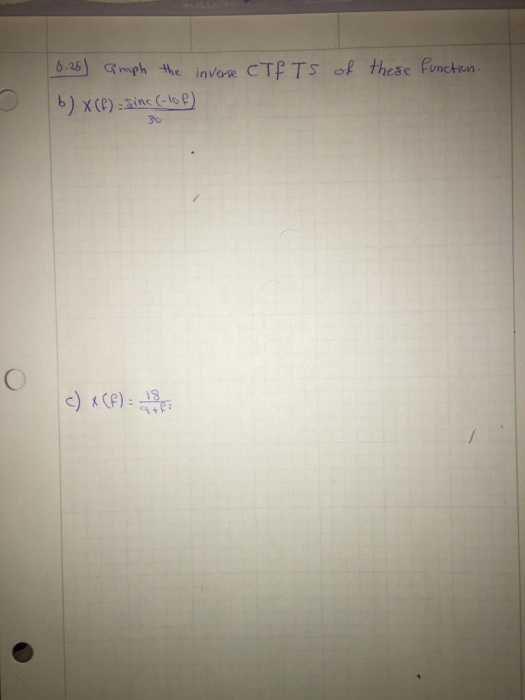 6.25) Graph the inverse CTFTS of these function.
b) X(f) = sinc(-10f)
30
c) x(f) = 18
9+f²